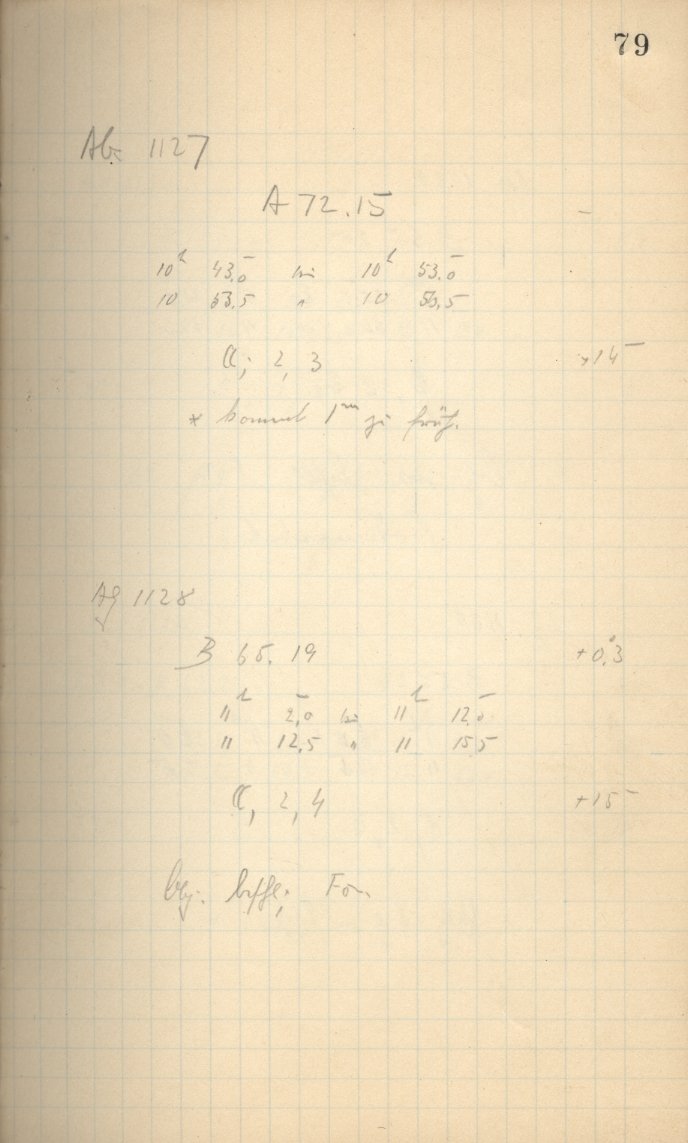 79
Ab 1127
A 72.15 –
10h 43.0 bis 10h 53.0
10 53.5 " 10 56.5
☾; 2, 3 +14
* kommt 1m zu früh.
Ag 1128
B 65.19 +0.3
11h 2.0 bis 11h 12.5
11 12.5 " 11 15.5
☾, 2, 4 +15
Obj. beschl.; Fon